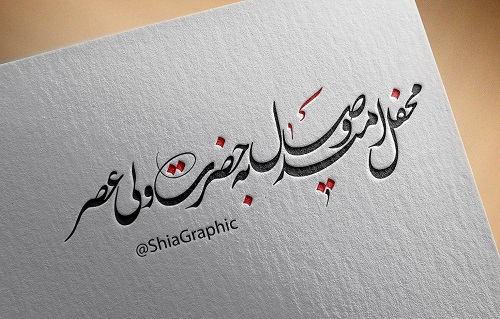 محفل امید وصال به حضرت ولی عصر
@ShiaGraphic